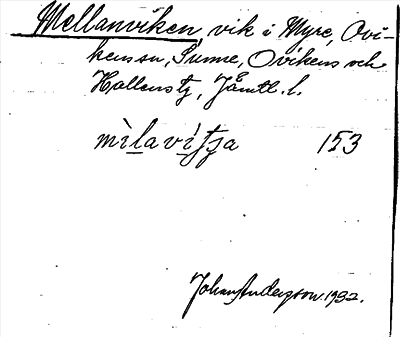 Mellanviken, vik i Myre, Ovi-
kens sn, Sunne, Ovikens och
Hallens tg, Jämtl. l.
mìlavìʃʒa 153
Johan Anderson 1932.